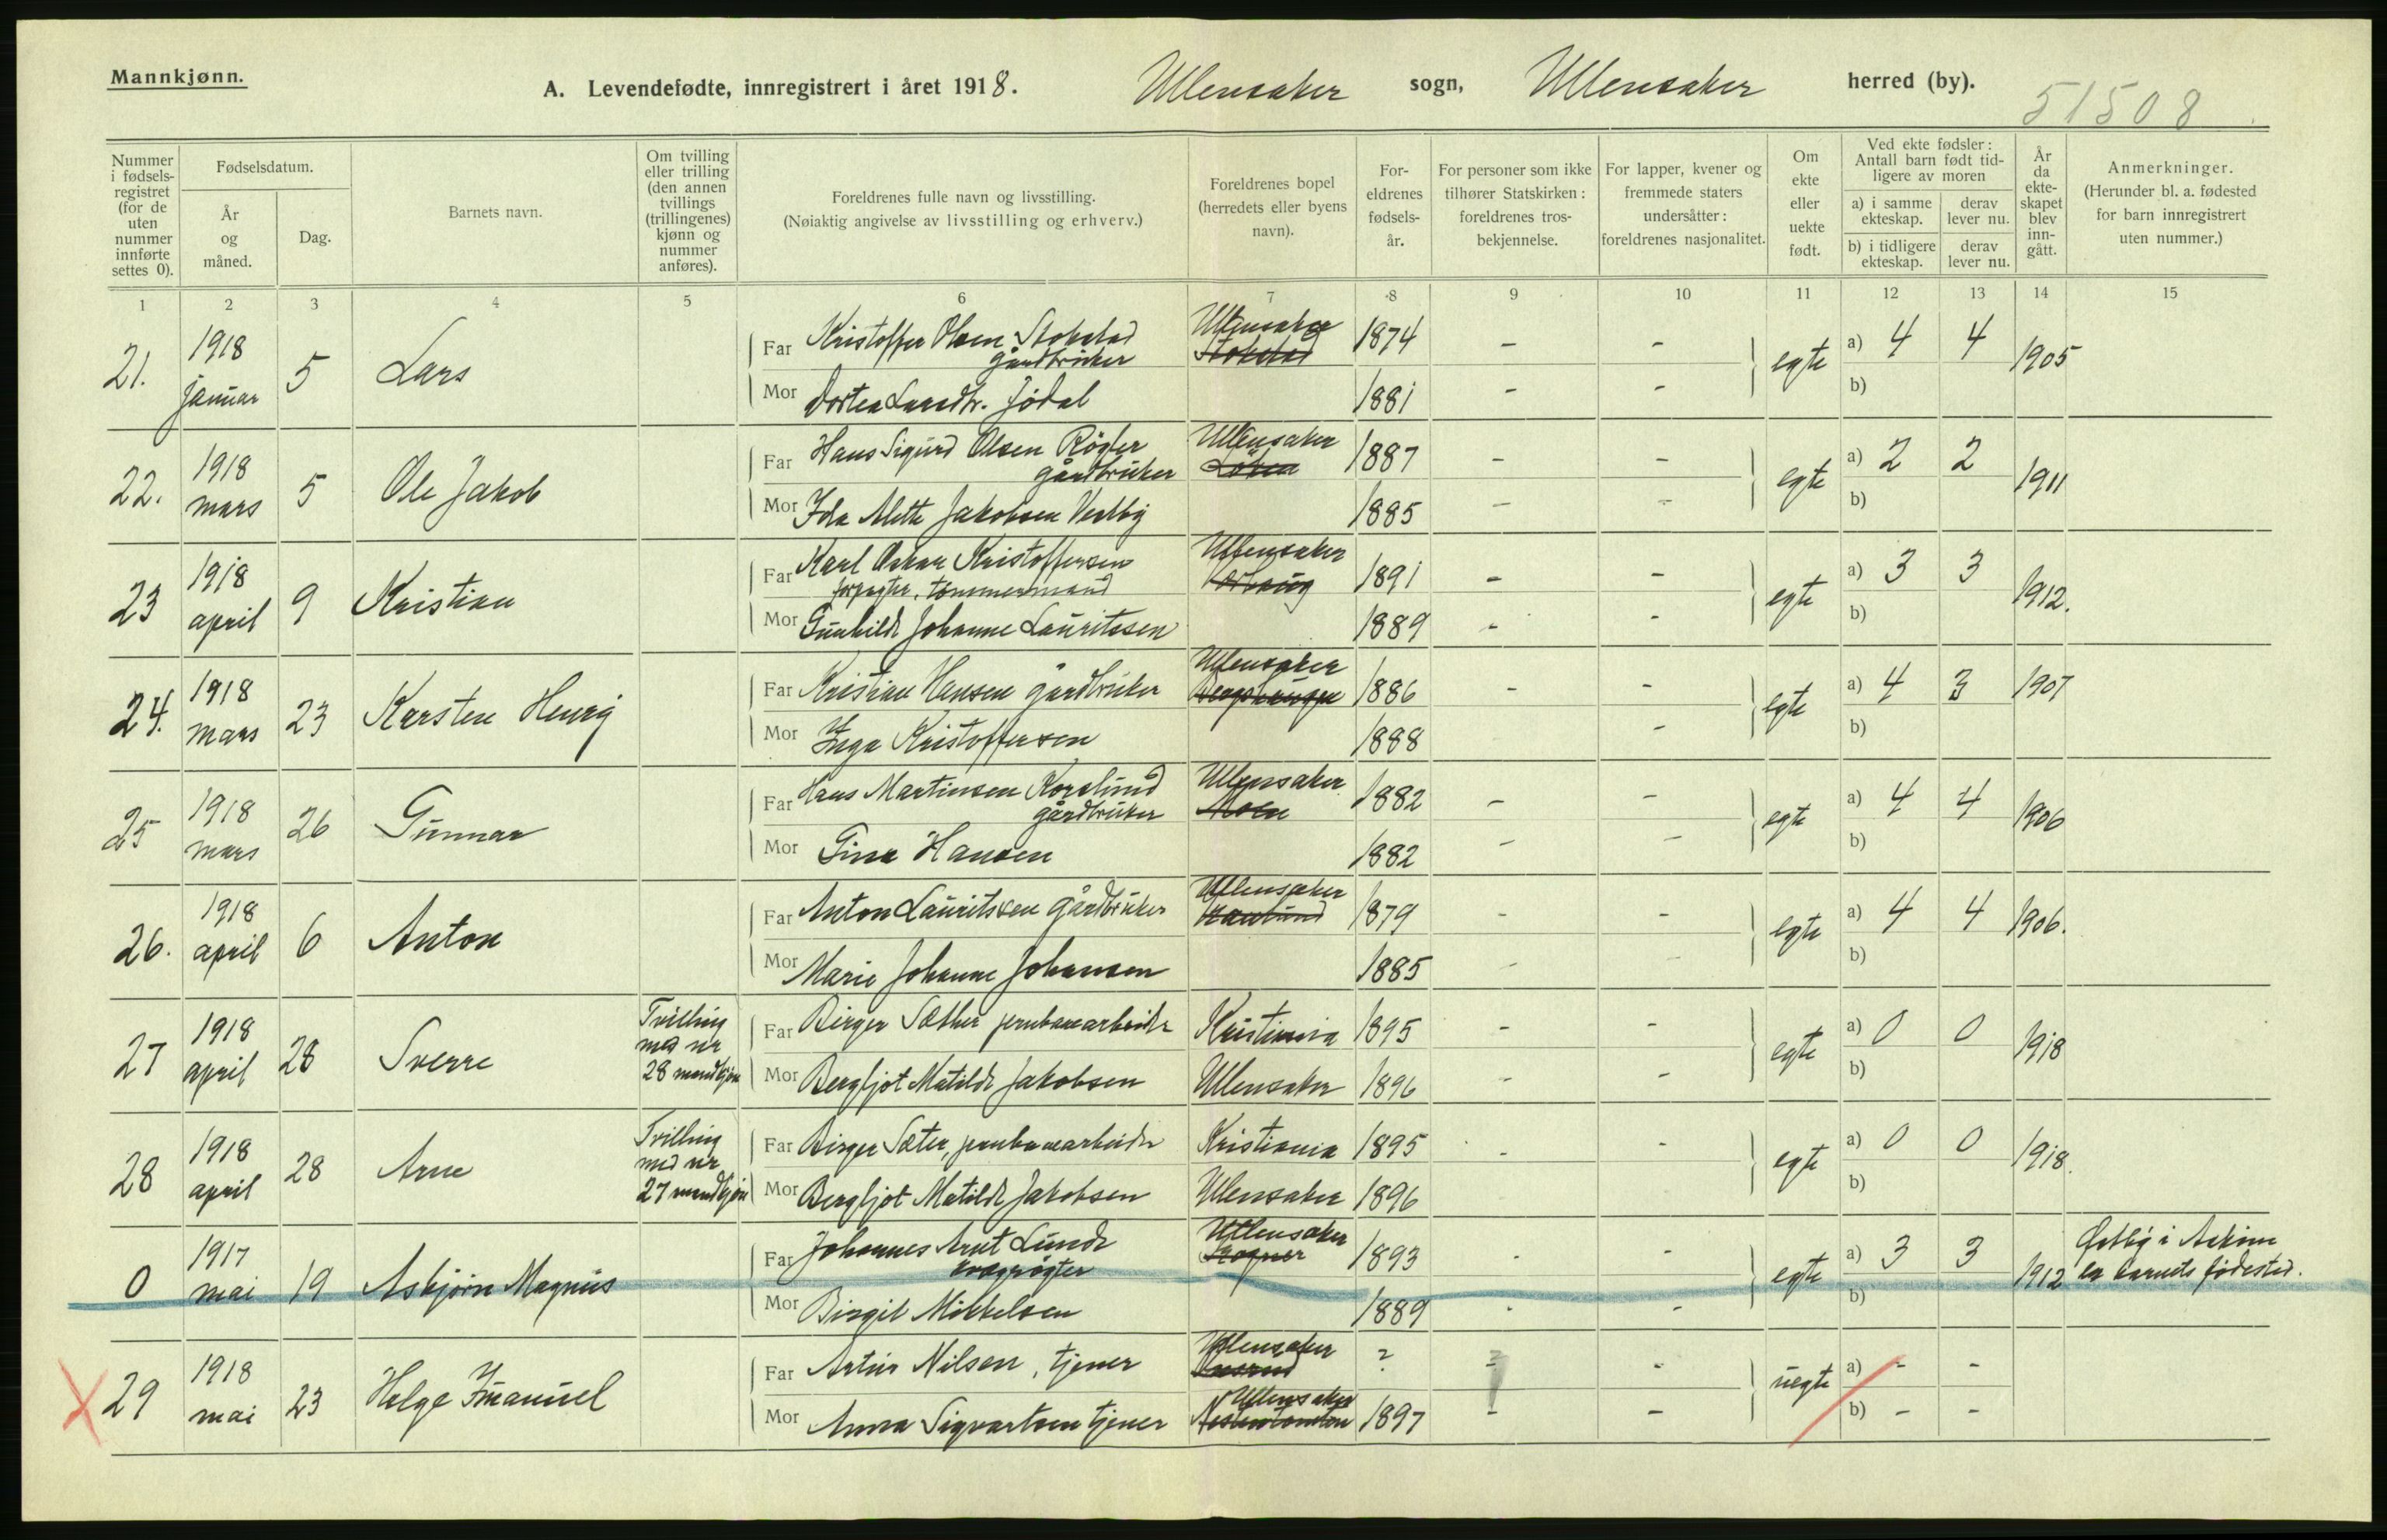 Mannkjønn.
A. Levendefødte, innregistrert i året 1918. Ullensaker sogn, Ullensaker herred (by).
51508
Nummer i fødselsregistret (for de uten nummer innførte settes 0).
Fødselsdatum.
År og måned.
Dag.
Barnets navn.
Om tvilling eller trilling (den annen tvillings (trillingenes) kjønn og nummer anføres).
Foreldrenes fulle navn og livsstilling.
(Nøiaktig angivelse av livsstilling og erhverv.)
Foreldrenes bopel (herredets eller byens navn).
Foreldrenes fødselsår.
For personer som ikke tilhører Statskirken: foreldrenes trosbekjennelse.
For lapper, kvener og fremmede staters undersåtter: foreldrenes nasjonalitet.
Om ekte eller uekte født.
Ved ekte fødsler: Antall barn født tidligere av moren
a) i samme ekteskap.
derav lever nu.
b) i tidligere ekteskap.
derav lever nu.
År da ekteskapet blev inngått.
Anmerkninger.
(Herunder bl. a. fødested for barn innregistrert uten nummer.)
1 2 3 4 5 6 7 8 9 10 11 12 13 14 15
21. 1918 januar 5 Lars
Far Kristoffer Olsen Stokstad gårdbruker Ullensaker Stokstad 1874 - - egte a) 4 4 1905
Mor Dortea Larsdtr. Jödal 1881 - - b)
22. 1918 mars 5 Ole Jakob
Far Hans Sigurd Olsen Rögler gårdbruker Ullensaker Løken 1887 - - egte a) 2 2 1911
Mor Ida Alette Jakobsen Vestby 1885 - - b)
23 1918 april 9 Kristian
Far Karl Oskar Kristoffersen forpagter, tømmermand Ullensaker 1891 - - egte a) 3 3 1912.
Mor Gunhild Johanne Lauritssen 1889 - - b)
24. 1918 mars 23 Karsten Henry
Far Kristian Hansen gårdbruker Ullensaker 1886 - - egte a) 4 3 1907
Mor Inga Kristoffersen 1888 - b)
25 1918 mars 26 Gunnar
Far Hans Martinsen Korslund gårdbruker Ullensaker Moen 1882 - - egte a) 4 4 1906
Mor Gina Hansen 1882 - - b)
26. 1918 april 6 Anton
Far Anton Lauritssen gårdbruker Ullensaker 1879 - - egte a) 4 4 1906.
Mor Marie Johanne Johansen 1885 - - b)
27 1918 april 28 Sverre Tvilling med nr 28 mandkjøn
Far Birger Sæther jernbanearbeider Kristiania 1895 - - egte a) 0 0 1918
Mor Bergljot Matilde Jakobsen Ullensaker 1896 - - b)
28 1918 april 28 Arne Tvilling med nr 27 mandkjøn
Far Birger Sæter, jernbanearbeider Kristiania 1895 - - egte a) 0 0 1918.
Mor Bergljot Matilde Jakobsen Ullensaker 1896 b)
0 1917 mai 19 Asbjørn Magnus
Far Johannes Arnt Lunde kvægrøgter Ullensaker Rogner 1893 - - egte a) 3 3 1912 Østby i Askim er barnets fødested.
Mor Birgit Mikkelsen 1889 - - b)
29 1918 mai 23 Helge Imanuel
Far Artur Nilsen, tjener Ullensaker ? - - uegte a) - -
Mor Anna Sigvartsen tjener Ullensaker 1897 - - b) - -